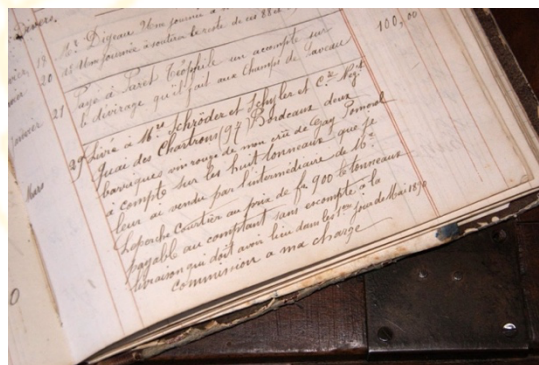 Divers
Mr Digeau 2 1/2 journée à
di 1/2 journée à soutirer le reste de ces 88 et
18
20
Payé à Paret Téophile un accompte sur
le dévirage qu'il fait aux Champs de Taveau
100,00
21
29 Livré à Mrs Schröder et Schyler et Cie Negts
quai des Chartrons (97) Bordeaux deux
barriques vin rouge de mon crû de Gay Pomerol
à compte sur les huit tonneaux que je
leur ai vendu par l'intermédiaire de Mr
Laperche Courtier au prix de f. 900 le tonneaux
payable au comptant sans escompte à la
livraison qui doit avoir lieu dans les 1ers jours de Mai 1890
commission à ma charge
Mars
0